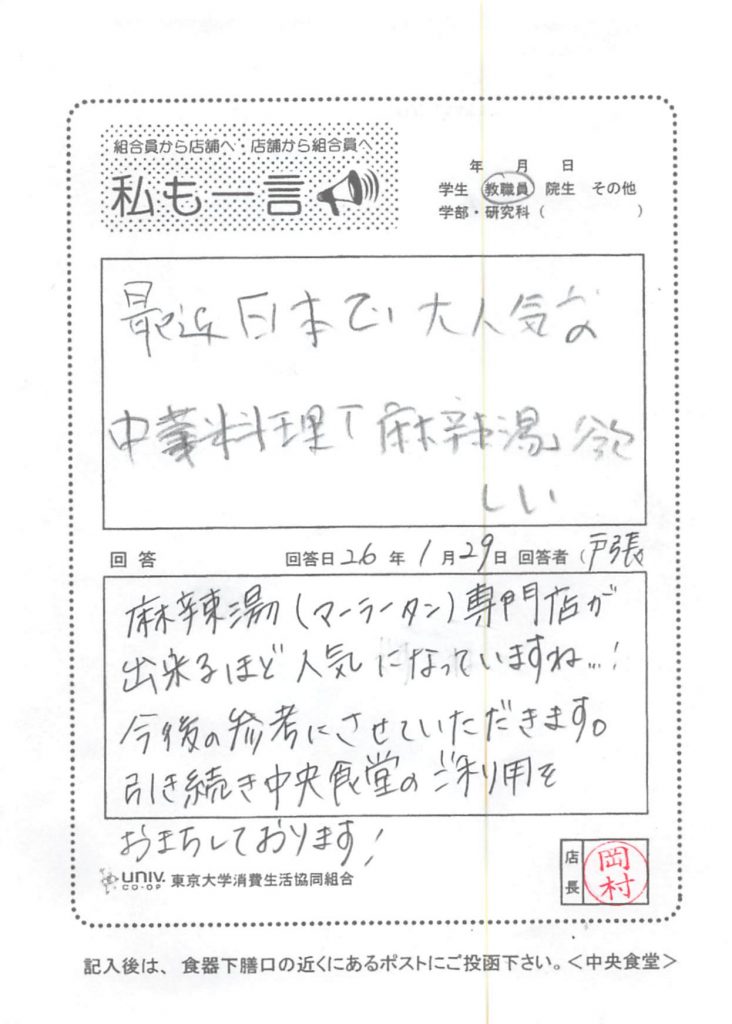 組合員から店舗へ・店舗から組合員へ
私も一言
年 月 日
学生 教職員 院生 その他
学部・研究科( )
最近日本で大人気な
中華料理「麻辣湯」欲
しい
回答 回答日26年1月29日 回答者(戸張
麻辣湯(マーラータン)専門店が
出来るほど人気になっていますね…!
今後の参考にさせていただきます。
引き続き中央食堂のご利用を
おまちしております!
店長 岡村
UNIV. CO-OP 東京大学消費生活協同組合
記入後は、食器下膳口の近くにあるポストにご投函下さい。<中央食堂>